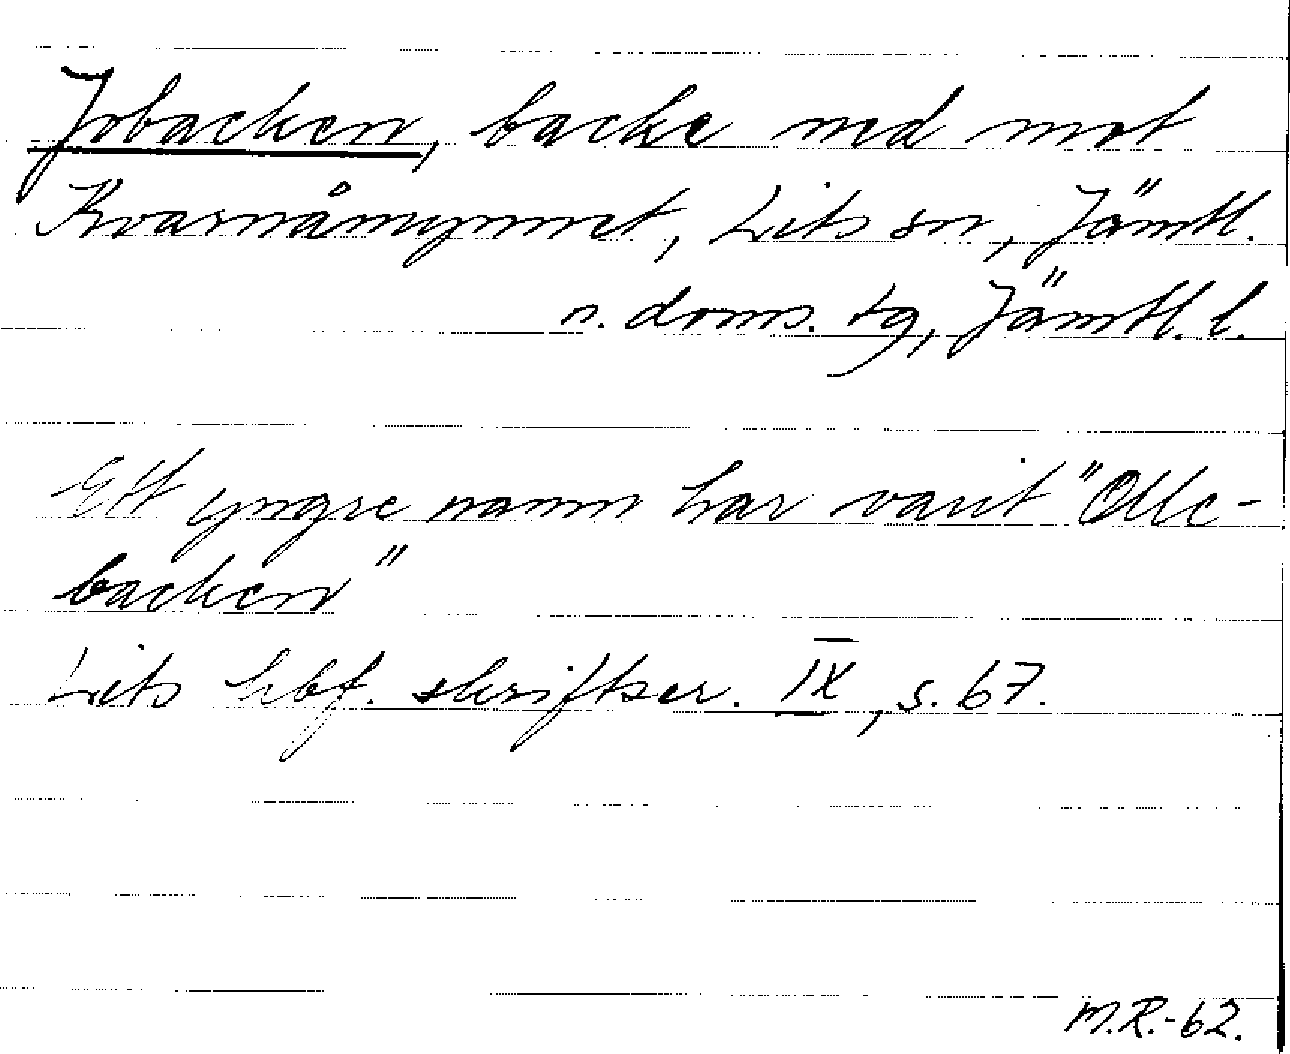 Jobacken, backe ned mot
Kvarnåmynnet, Lits sn, Jämtl.
n. doms. tg, Jämtl. l.
Ett yngre namn har varit "Olle-
backen"
Lits hbf. skriftser. IX, s. 67.
M.R.-62.